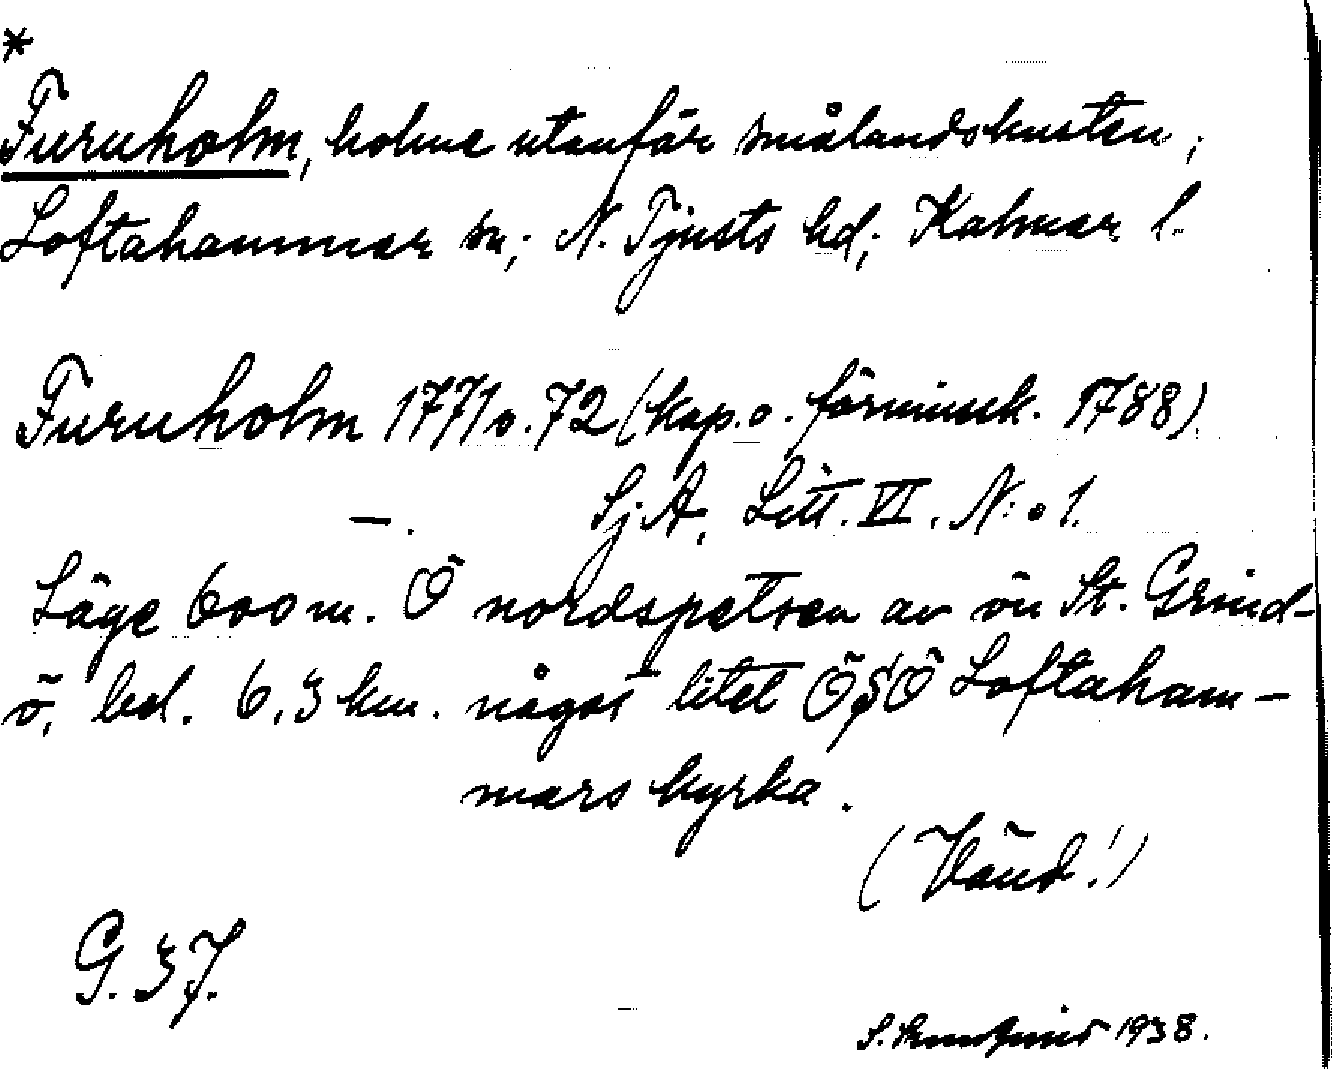 *
Furuholm, holme utanför smålandskusten,
Loftahammar sn; N. Tjusts hd; Kalmar l.
Furuholm 1771 o. 72 (kop. o. förminsk. 1788)
—. SjA, Litt. VI. N:o 1.
Läge 600 m. Ö nordspetsen av ön St. Grind-
ö, bel. 6,3 km. något litet ÖSÖ Loftaham-
mars kyrka.
(Vänd!)
G. 37.
S. 1938.